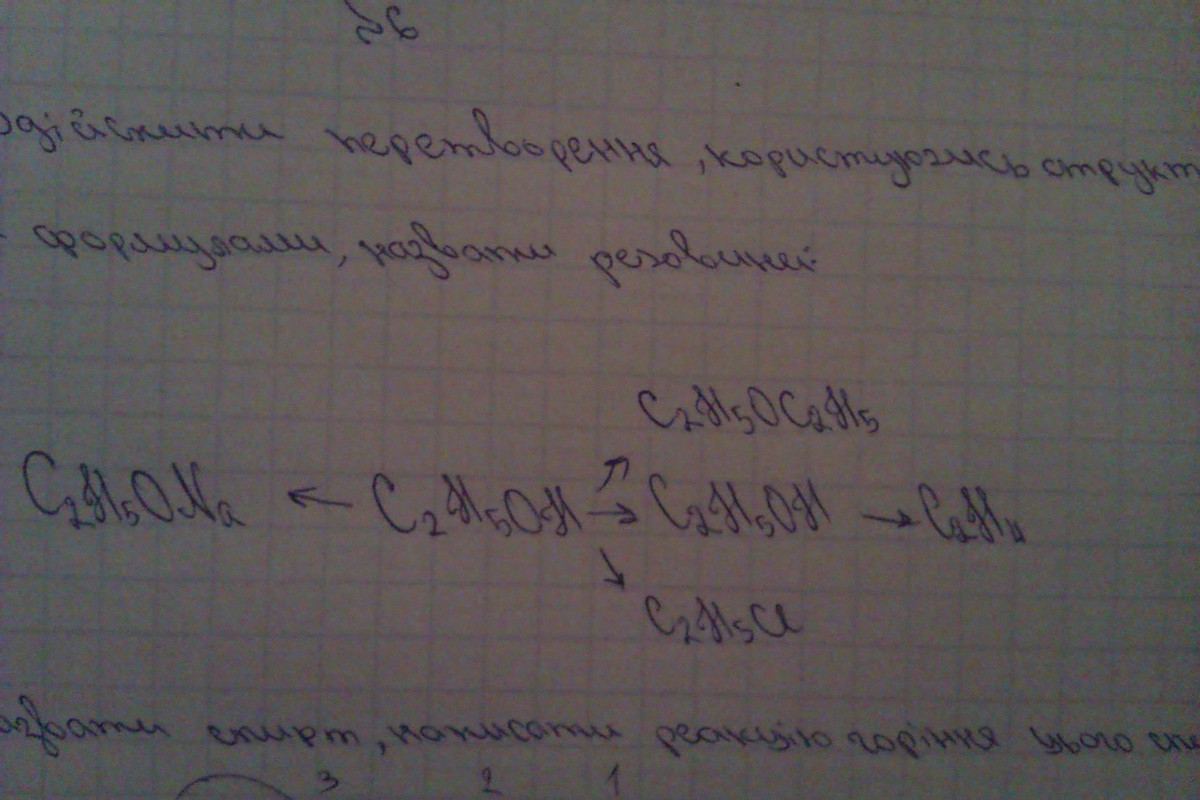 №6
одійснити перетворення, користуючись структ
формулами, назвати речовини:
C₂H₅OC₂H₅
C₂H₅ONa ← C₂H₅OH → C₂H₅OH → C₂H₄
C₂H₅Cl
азвати спирт, написати реакцію горіння цього спи
3 2 1